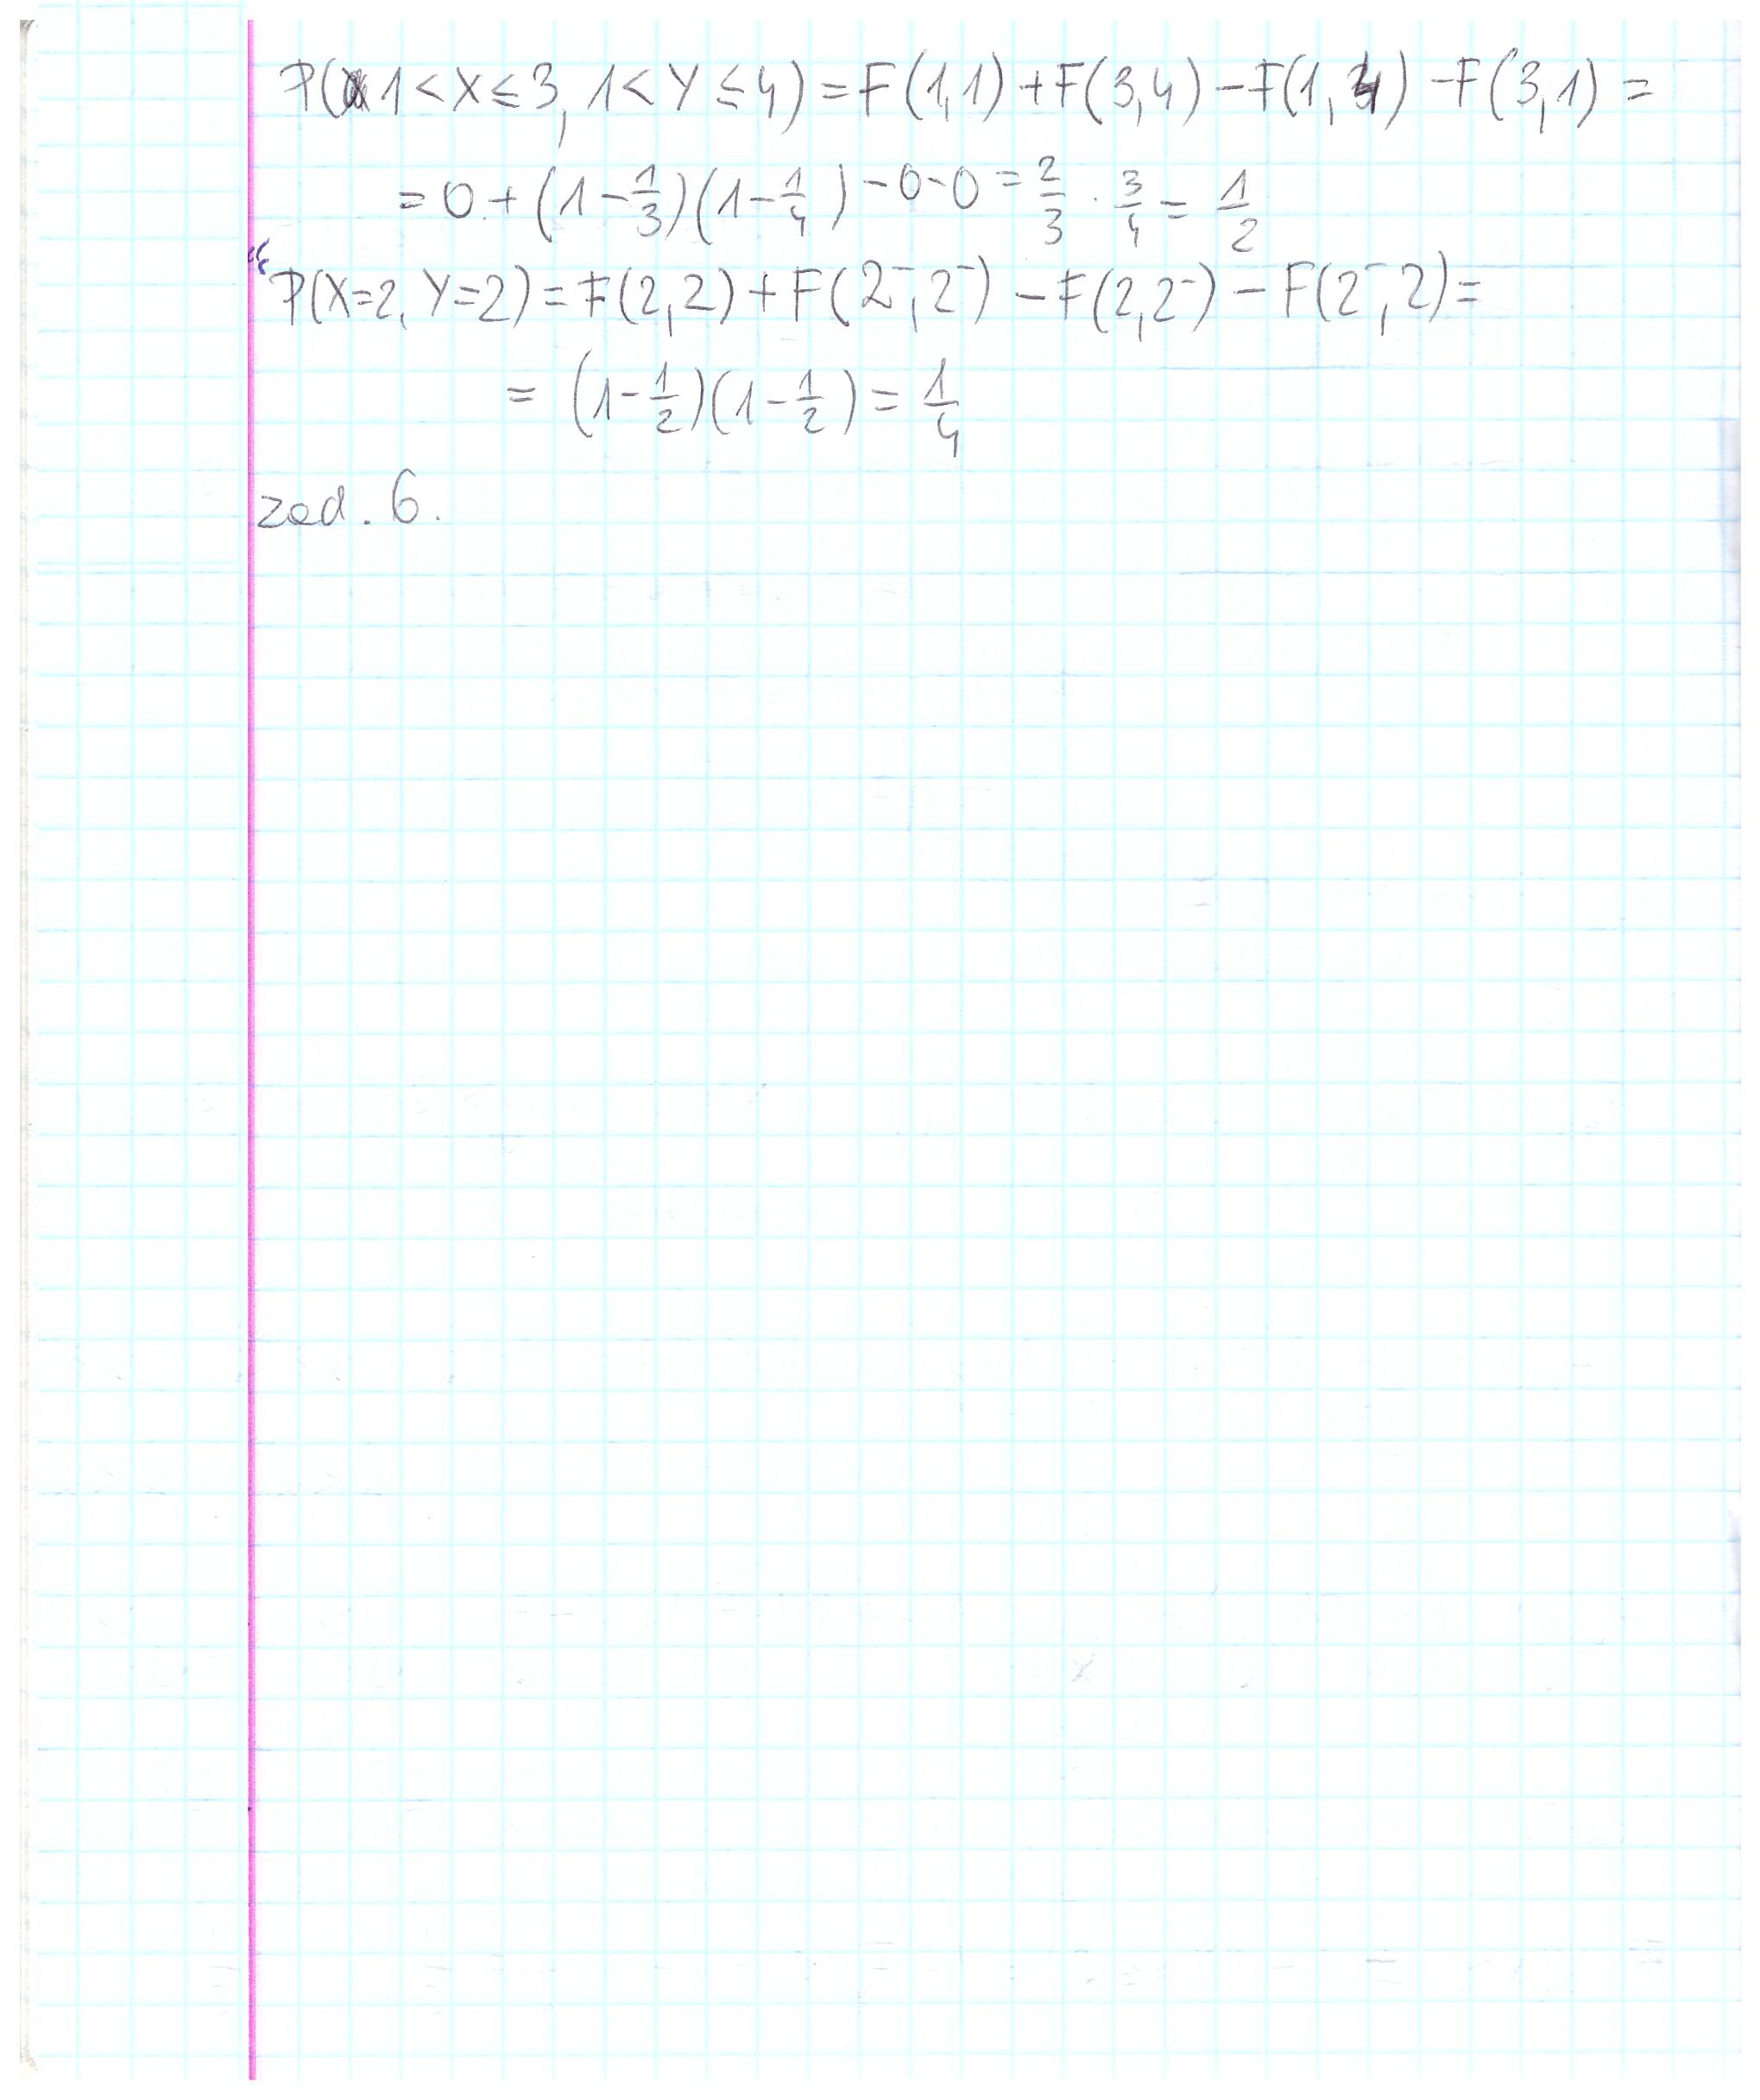 P(1<X≤3, 1<Y≤4) = F(1,1) + F(3,4) - F(1,4) - F(3,1) =
= 0 + (1-1/3)(1-1/4) - 0 - 0 = 2/3 · 3/4 = 1/2
P(X=2, Y=2) = F(2,2) + F(2⁻,2⁻) - F(2,2⁻) - F(2⁻,2) =
= (1-1/2)(1-1/2) = 1/4
zad. 6.